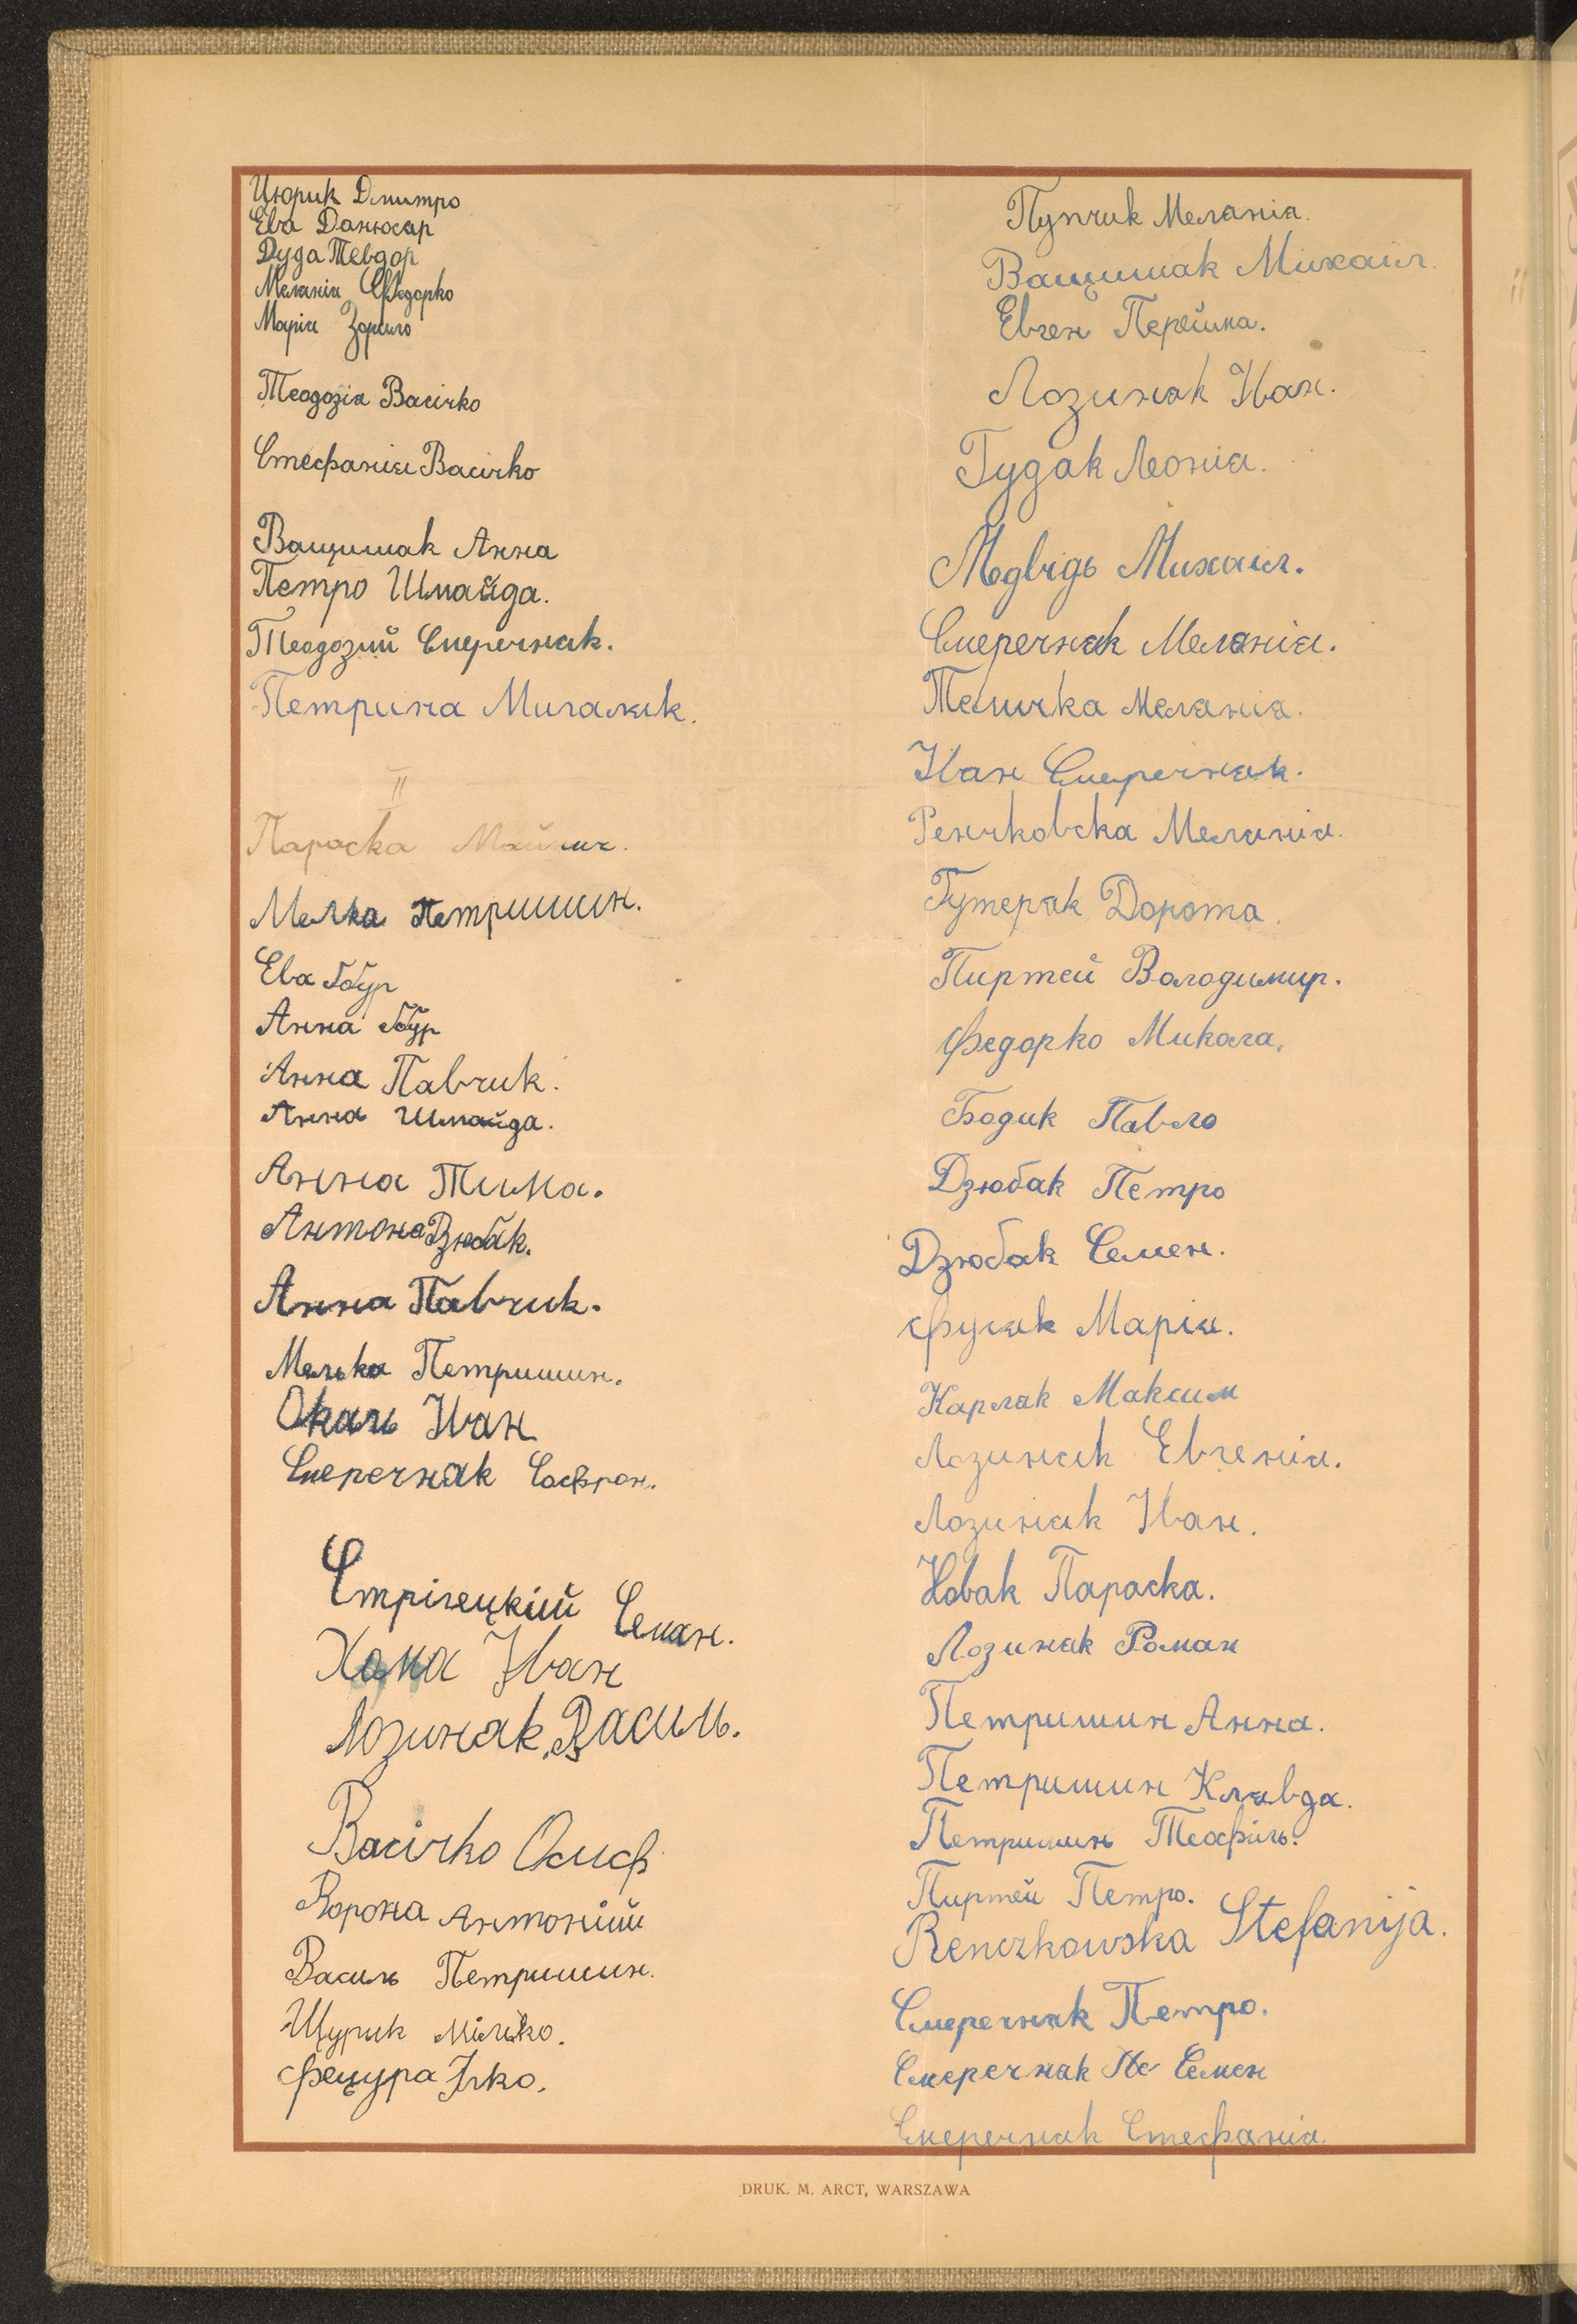 Цюрик Дмитро
Ева Данюсар
Дуда Тевдор
Меланія Федорко
Марія Зорило
Теодозія Васічко
Стефанія Васічко
Ващишак Анна
Петро Шмайда.
Теодозий Смеречняк.
Петрина Мигаляк.
II
Параска
Мелка Петришин.
Ева Бобур
Анна Бобур
Анна Павчик.
Анна Шмайда.
Анна Тима.
Антона Дзюбак.
Анна Павчик.
Мелька Петришин.
Окаль Иван
Смеречняк Софрон.
Стрілецкій Семан.
Хома Іван
Лозиняк Василь.
Васічко Осиф
Ворона Антоній
Василь Петришин.
Щурик Мілько.
Фецура Ілко.
Пупчик Меланія.
Ващишак Михаіл.
Евген Перейма.
Лозиняк Иван.
Гудак Леонія.
Медвідь Михаіл.
Смеречняк Меланія.
Теличка Меланія.
Иван Смеречняк.
Ренчковска Меланія.
Гутеряк Дорота.
Пиртей Володимир.
Федорко Микола.
Бодик Павло
Дзюбак Петро
Дзюбак Семен.
Фуцяк Марія.
Карляк Максим
Лозиняк Евгенія.
Лозиняк Иван.
Новак Параска.
Лозиняк Роман
Петришин Анна.
Петришин Клявда.
Петришин Теофіль.
Пиртей Петро.
Renczkowska Stefanija.
Смеречняк Петро.
Смеречняк Пе Семен
Смеречняк Стефанія.
DRUK. M. ARCT, WARSZAWA